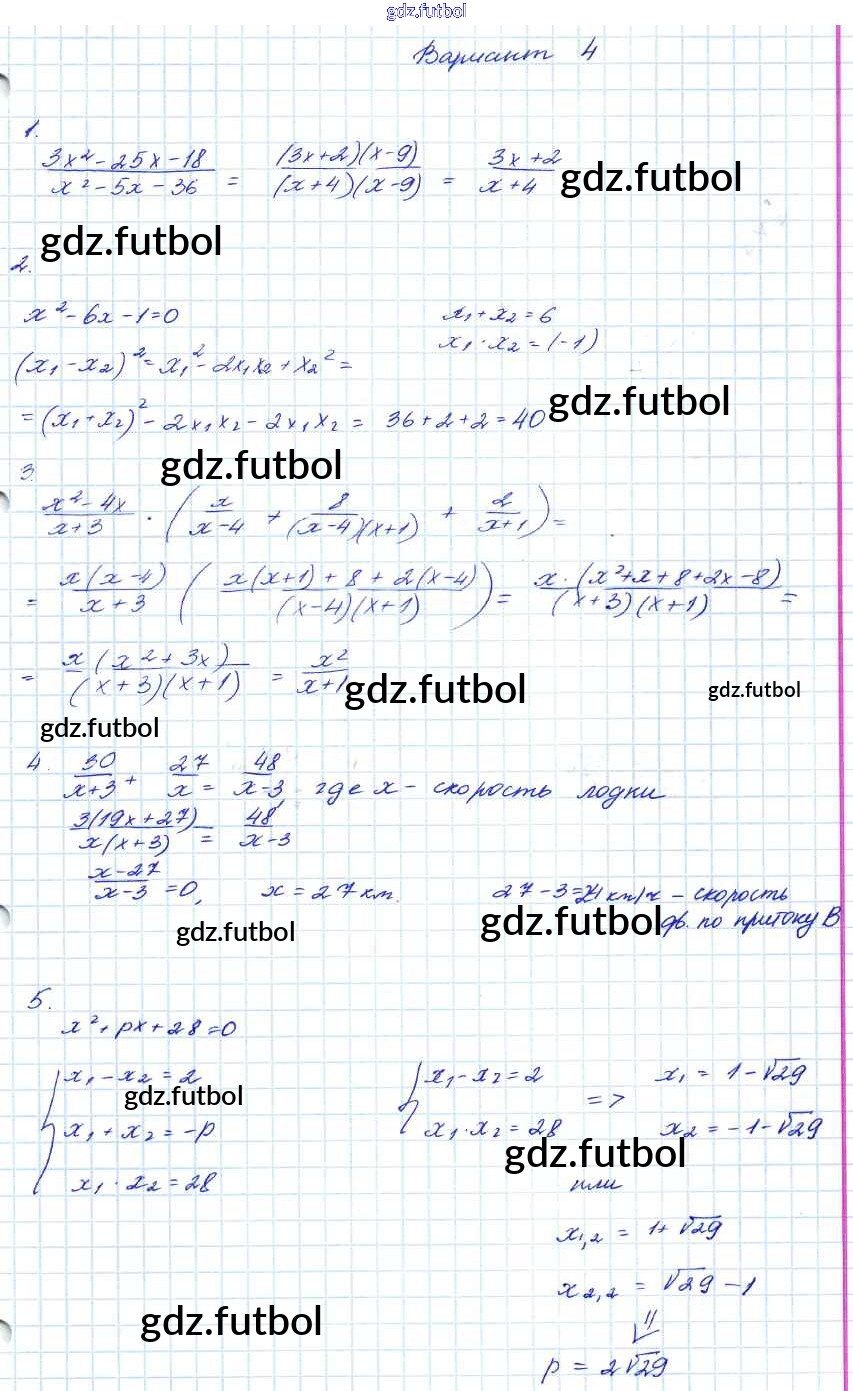 gdz.futbol
Вариант 4
1.
(3x² - 25x - 18)/(x² - 5x - 36) = ((3x+2)(x-9))/((x+4)(x-9)) = (3x+2)/(x+4) gdz.futbol
gdz.futbol
2.
x² - 6x - 1 = 0 x₁ + x₂ = 6
x₁ · x₂ = (-1)
(x₁ - x₂)² = x₁² - 2x₁x₂ + x₂² =
= (x₁ + x₂)² - 2x₁x₂ - 2x₁x₂ = 36 + 2 + 2 = 40 gdz.futbol
3. gdz.futbol
(x² - 4x)/(x+3) · (x/(x-4) + 8/((x-4)(x+1)) + 2/(x+1)) =
= (x(x-4))/(x+3) ((x(x+1) + 8 + 2(x-4))/((x-4)(x+1))) = (x · (x² + x + 8 + 2x - 8))/((x+3)(x+1)) =
= (x(x² + 3x))/((x+3)(x+1)) = x²/(x+1) gdz.futbol gdz.futbol
gdz.futbol
4. 30/(x+3) + 27/x = 48/(x-3), где x - скорость лодки
(3(19x+27))/(x(x+3)) = 48/(x-3)
(x-27)/(x-3) = 0, x = 27 км. 27 - 3 = 24 км/ч - скорость
gdz.futbol gdz.futbol дв. по притоку В
5.
x² + px + 28 = 0
x₁ - x₂ = 2 x₁ - x₂ = 2 => x₁ = 1 - √29
gdz.futbol
x₁ + x₂ = -p x₁ · x₂ = 28 x₂ = -1 - √29
gdz.futbol
x₁ · x₂ = 28 или
x₁,₂ = 1 + √29
x₂,₂ = √29 - 1
gdz.futbol
p = 2√29